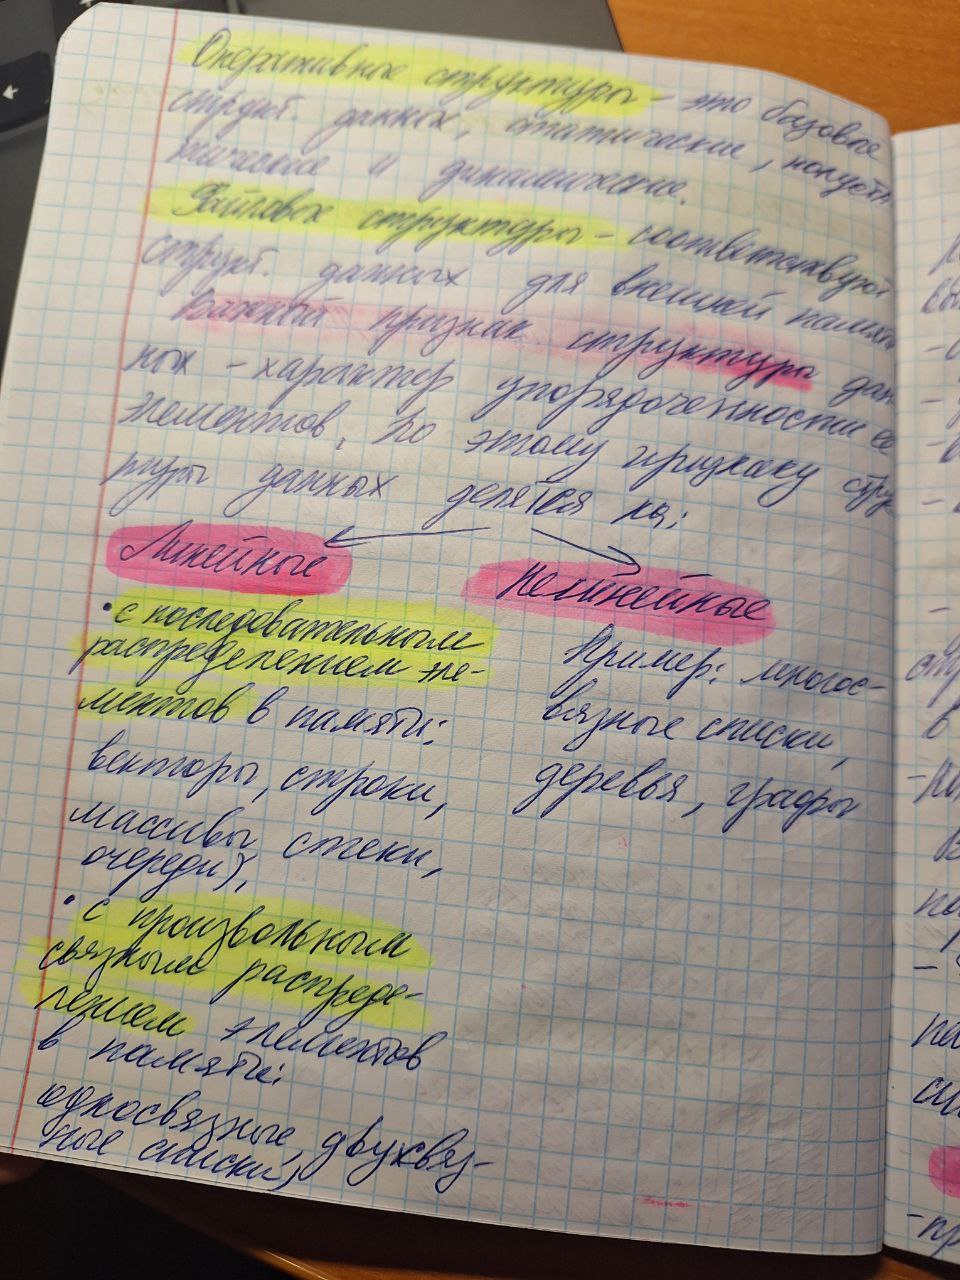 Оперативные структуры - это базовые
структ. данных, статические, полуста
тические и динамические.
Файловые структуры - соответствуют
структ. данных для внешней памяти
Важный признак структуры дан
ных - характер упорядоченности её
элементов. По этому признаку стру
туры данных делятся на:
Линейные
• с последовательным
распределением эле-
ментов в памяти:
векторы, строки,
массивы, стеки,
очереди),
• с произвольным
связным распреде-
лением элементов
в памяти:
односвязные, двухсвяз-
ные списки)
Нелинейные
Пример: многос-
вязные списки,
деревья, графы